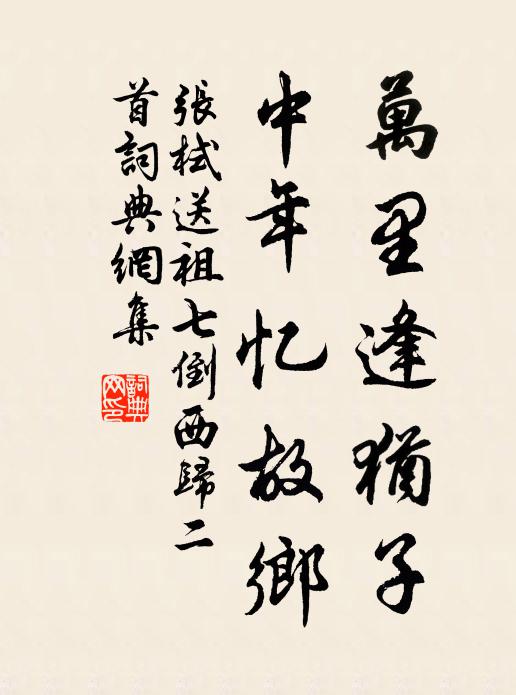 萬里逢猶子
中年忆故鄉
張栻送祖七倒西歸二
首詞典網集
詞典
网印